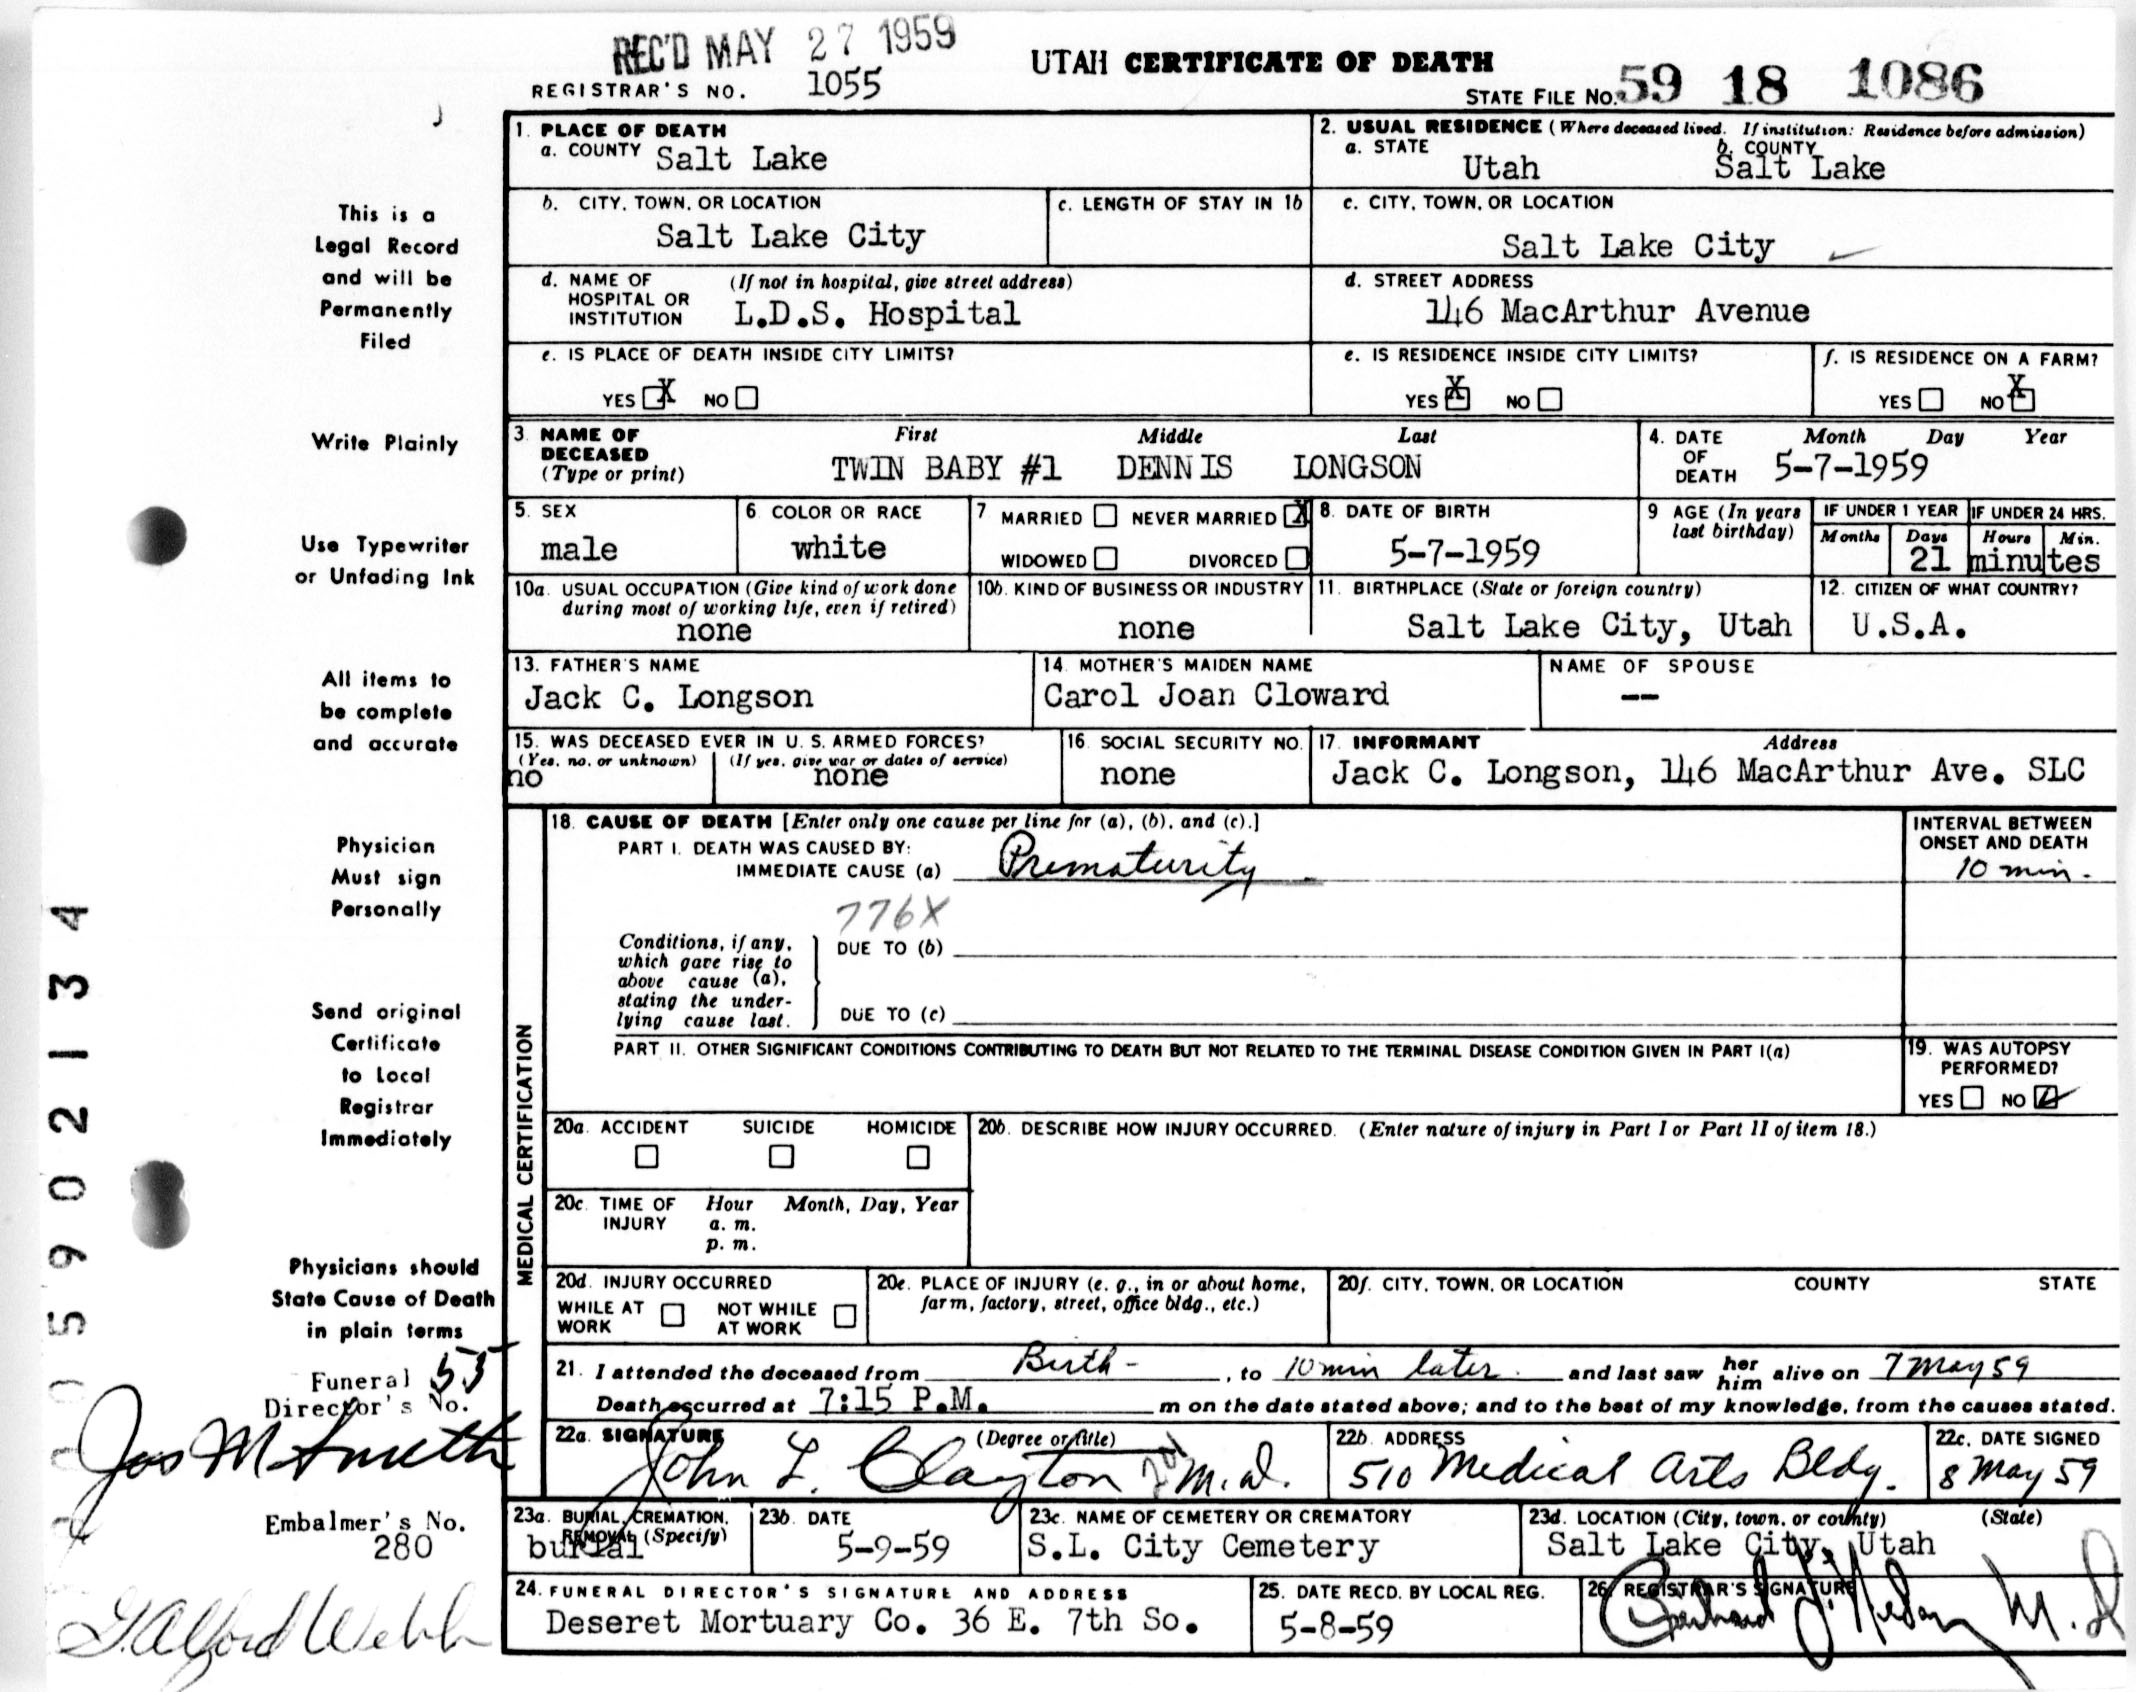 REC'D MAY 27 1959
REGISTRAR'S NO. 1055
UTAH CERTIFICATE OF DEATH
STATE FILE NO. 59 18 1086
This is a
Legal Record
and will be
Permanently
Filed
Write Plainly
Use Typewriter
or Unfading Ink
All items to
be complete
and accurate
Physician
Must sign
Personally
Send original
Certificate
to Local
Registrar
Immediately
Physicians should
State Cause of Death
in plain terms
Funeral 55
Director's No.
Jos M Smith
Embalmer's No.
280
Alford Webb
005902134
1. PLACE OF DEATH
a. COUNTY Salt Lake
2. USUAL RESIDENCE (Where deceased lived. If institution: Residence before admission)
a. STATE Utah b. COUNTY Salt Lake
b. CITY, TOWN, OR LOCATION
Salt Lake City
c. LENGTH OF STAY IN 1b
c. CITY, TOWN, OR LOCATION
Salt Lake City
d. NAME OF HOSPITAL OR INSTITUTION (If not in hospital, give street address)
L.D.S. Hospital
d. STREET ADDRESS
146 MacArthur Avenue
e. IS PLACE OF DEATH INSIDE CITY LIMITS?
YES X NO
e. IS RESIDENCE INSIDE CITY LIMITS?
YES X NO
f. IS RESIDENCE ON A FARM?
YES NO X
3. NAME OF DECEASED (Type or print) First Middle Last
TWIN BABY #1 DENNIS LONGSON
4. DATE OF DEATH Month Day Year
5-7-1959
5. SEX
male
6. COLOR OR RACE
white
7 MARRIED NEVER MARRIED X
WIDOWED DIVORCED
8. DATE OF BIRTH
5-7-1959
9 AGE (In years last birthday)
IF UNDER 1 YEAR IF UNDER 24 HRS.
Months Days Hours Min.
21 minutes
10a. USUAL OCCUPATION (Give kind of work done during most of working life, even if retired)
none
10b. KIND OF BUSINESS OR INDUSTRY
none
11. BIRTHPLACE (State or foreign country)
Salt Lake City, Utah
12. CITIZEN OF WHAT COUNTRY?
U.S.A.
13. FATHER'S NAME
Jack C. Longson
14. MOTHER'S MAIDEN NAME
Carol Joan Cloward
NAME OF SPOUSE
--
15. WAS DECEASED EVER IN U. S. ARMED FORCES?
(Yes, no, or unknown) (If yes, give war or dates of service)
no none
16. SOCIAL SECURITY NO.
none
17. INFORMANT Address
Jack C. Longson, 146 MacArthur Ave. SLC
MEDICAL CERTIFICATION
18. CAUSE OF DEATH [Enter only one cause per line for (a), (b), and (c).]
PART I. DEATH WAS CAUSED BY:
IMMEDIATE CAUSE (a) Prematurity
INTERVAL BETWEEN ONSET AND DEATH
10 min.
776X
Conditions, if any, which gave rise to above cause (a), stating the underlying cause last.
DUE TO (b)
DUE TO (c)
PART II. OTHER SIGNIFICANT CONDITIONS CONTRIBUTING TO DEATH BUT NOT RELATED TO THE TERMINAL DISEASE CONDITION GIVEN IN PART I(a)
19. WAS AUTOPSY PERFORMED?
YES NO
20a. ACCIDENT SUICIDE HOMICIDE
20b. DESCRIBE HOW INJURY OCCURRED. (Enter nature of injury in Part I or Part II of item 18.)
20c. TIME OF INJURY Hour Month, Day, Year
a. m.
p. m.
20d. INJURY OCCURRED
WHILE AT WORK NOT WHILE AT WORK
20e. PLACE OF INJURY (e. g., in or about home, farm, factory, street, office bldg., etc.)
20f. CITY, TOWN, OR LOCATION COUNTY STATE
21. I attended the deceased from Birth - , to 10 min later and last saw her him alive on 7 May 59
Death occurred at 7:15 P.M. m on the date stated above; and to the best of my knowledge, from the causes stated.
22a. SIGNATURE (Degree or title)
John L. Clayton M.D.
22b. ADDRESS
510 Medical Arts Bldg.
22c. DATE SIGNED
8 May 59
23a. BURIAL, CREMATION, REMOVAL (Specify)
burial
23b. DATE
5-9-59
23c. NAME OF CEMETERY OR CREMATORY
S.L. City Cemetery
23d. LOCATION (City, town, or county) (State)
Salt Lake City, Utah
24. FUNERAL DIRECTOR'S SIGNATURE AND ADDRESS
Deseret Mortuary Co. 36 E. 7th So.
25. DATE RECD. BY LOCAL REG.
5-8-59
26. REGISTRAR'S SIGNATURE
M.D